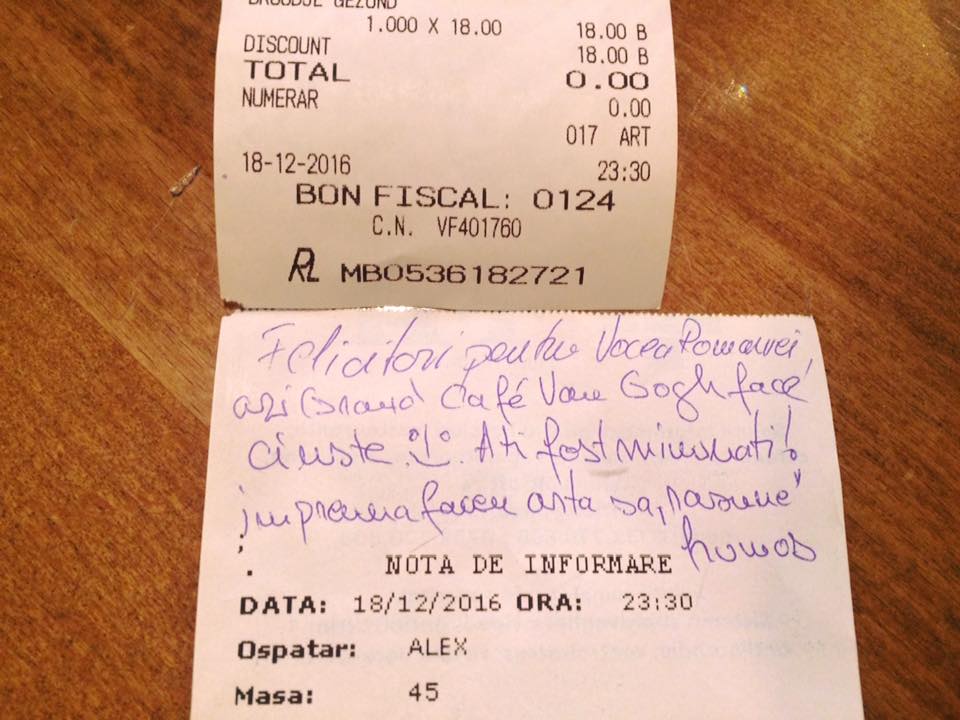 BROODJE GEZOND
1.000 X 18.00 18.00 B
DISCOUNT 18.00 B
TOTAL 0.00
NUMERAR 0.00
017 ART
18-12-2016 23:30
BON FISCAL: 0124
C.N. VF401760
MB0536182721
Felicitari pentru Vocea Romaniei,
azi Grand Café Van Gogh face
cinste :). Ati fost minunati!
impreuna facem arta sa „rasune”
frumos
. NOTA DE INFORMARE
DATA: 18/12/2016 ORA: 23:30
Ospatar: ALEX
Masa: 45